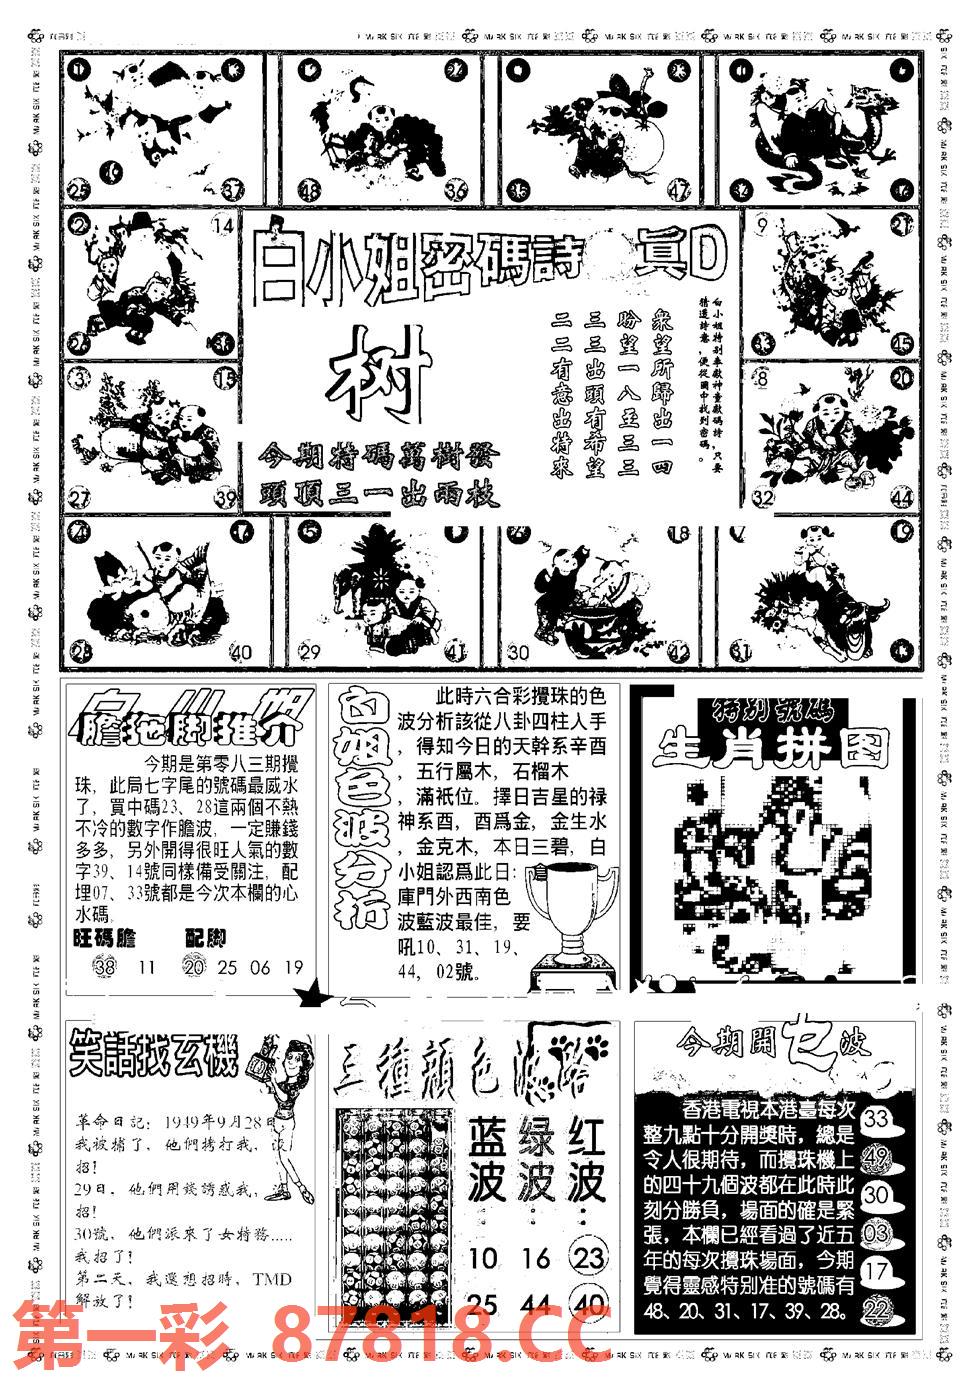 25 37 48 36 35 47
2 14 9 21
26 38 33 45
3 15 8 20
27 39 32 44
28 40 29 41 30 18 42 31 19
白小姐密碼詩 真D
树
今期特碼萬樹發
頭頂三一出兩枝
白小姐特别奉獻神童獻碼詩，只要
猜透詩意，便從圖中找到密碼。
衆望所歸出一四
盼望一八至三三
三三出頭有希望
二二有意出特來
膽拖脚推介
今期是第零八三期攪
珠，此局七字尾的號碼最威水
了，買中碼23、28這兩個不熱
不冷的數字作膽波，一定賺錢
多多，另外開得很旺人氣的數
字39、14號同樣備受關注，配
埋07、33號都是今次本欄的心
水碼。
旺碼膽 配脚
38 11 20 25 06 19
白姐色波分析
此時六合彩攪珠的色
波分析該從八卦四柱人手
，得知今日的天幹系辛酉
，五行屬木，石榴木
，滿祇位。擇日吉星的禄
神系酉，酉爲金，金生水
，金克木，本日三碧，白
小姐認爲此日：倉
庫門外西南色
波藍波最佳，要
吼10、31、19、
44、02號。
特别號碼
生肖拼图
笑話找玄機
革命日記：1949年9月28日
我被捕了，他們拷打我，没
招！
29日，他們用錢誘惑我，没
招！
30號，他們派來了女特務.....
我招了！
第二天、我還想招時，TMD
解放了！
三種顔色波路
蓝波：
10
25
绿波：
16
44
红波：
23
40
今期開乜波
香港電視本港臺每次
整九點十分開獎時，總是
令人很期待，而攪珠機上
的四十九個波都在此時此
刻分勝負，場面的確是緊
張，本欄已經看過了近五
年的每次攪珠場面，今期
覺得靈感特别准的號碼有
48、20、31、17、39、28。
33
49
30
03
17
22
第一彩 87818.CC